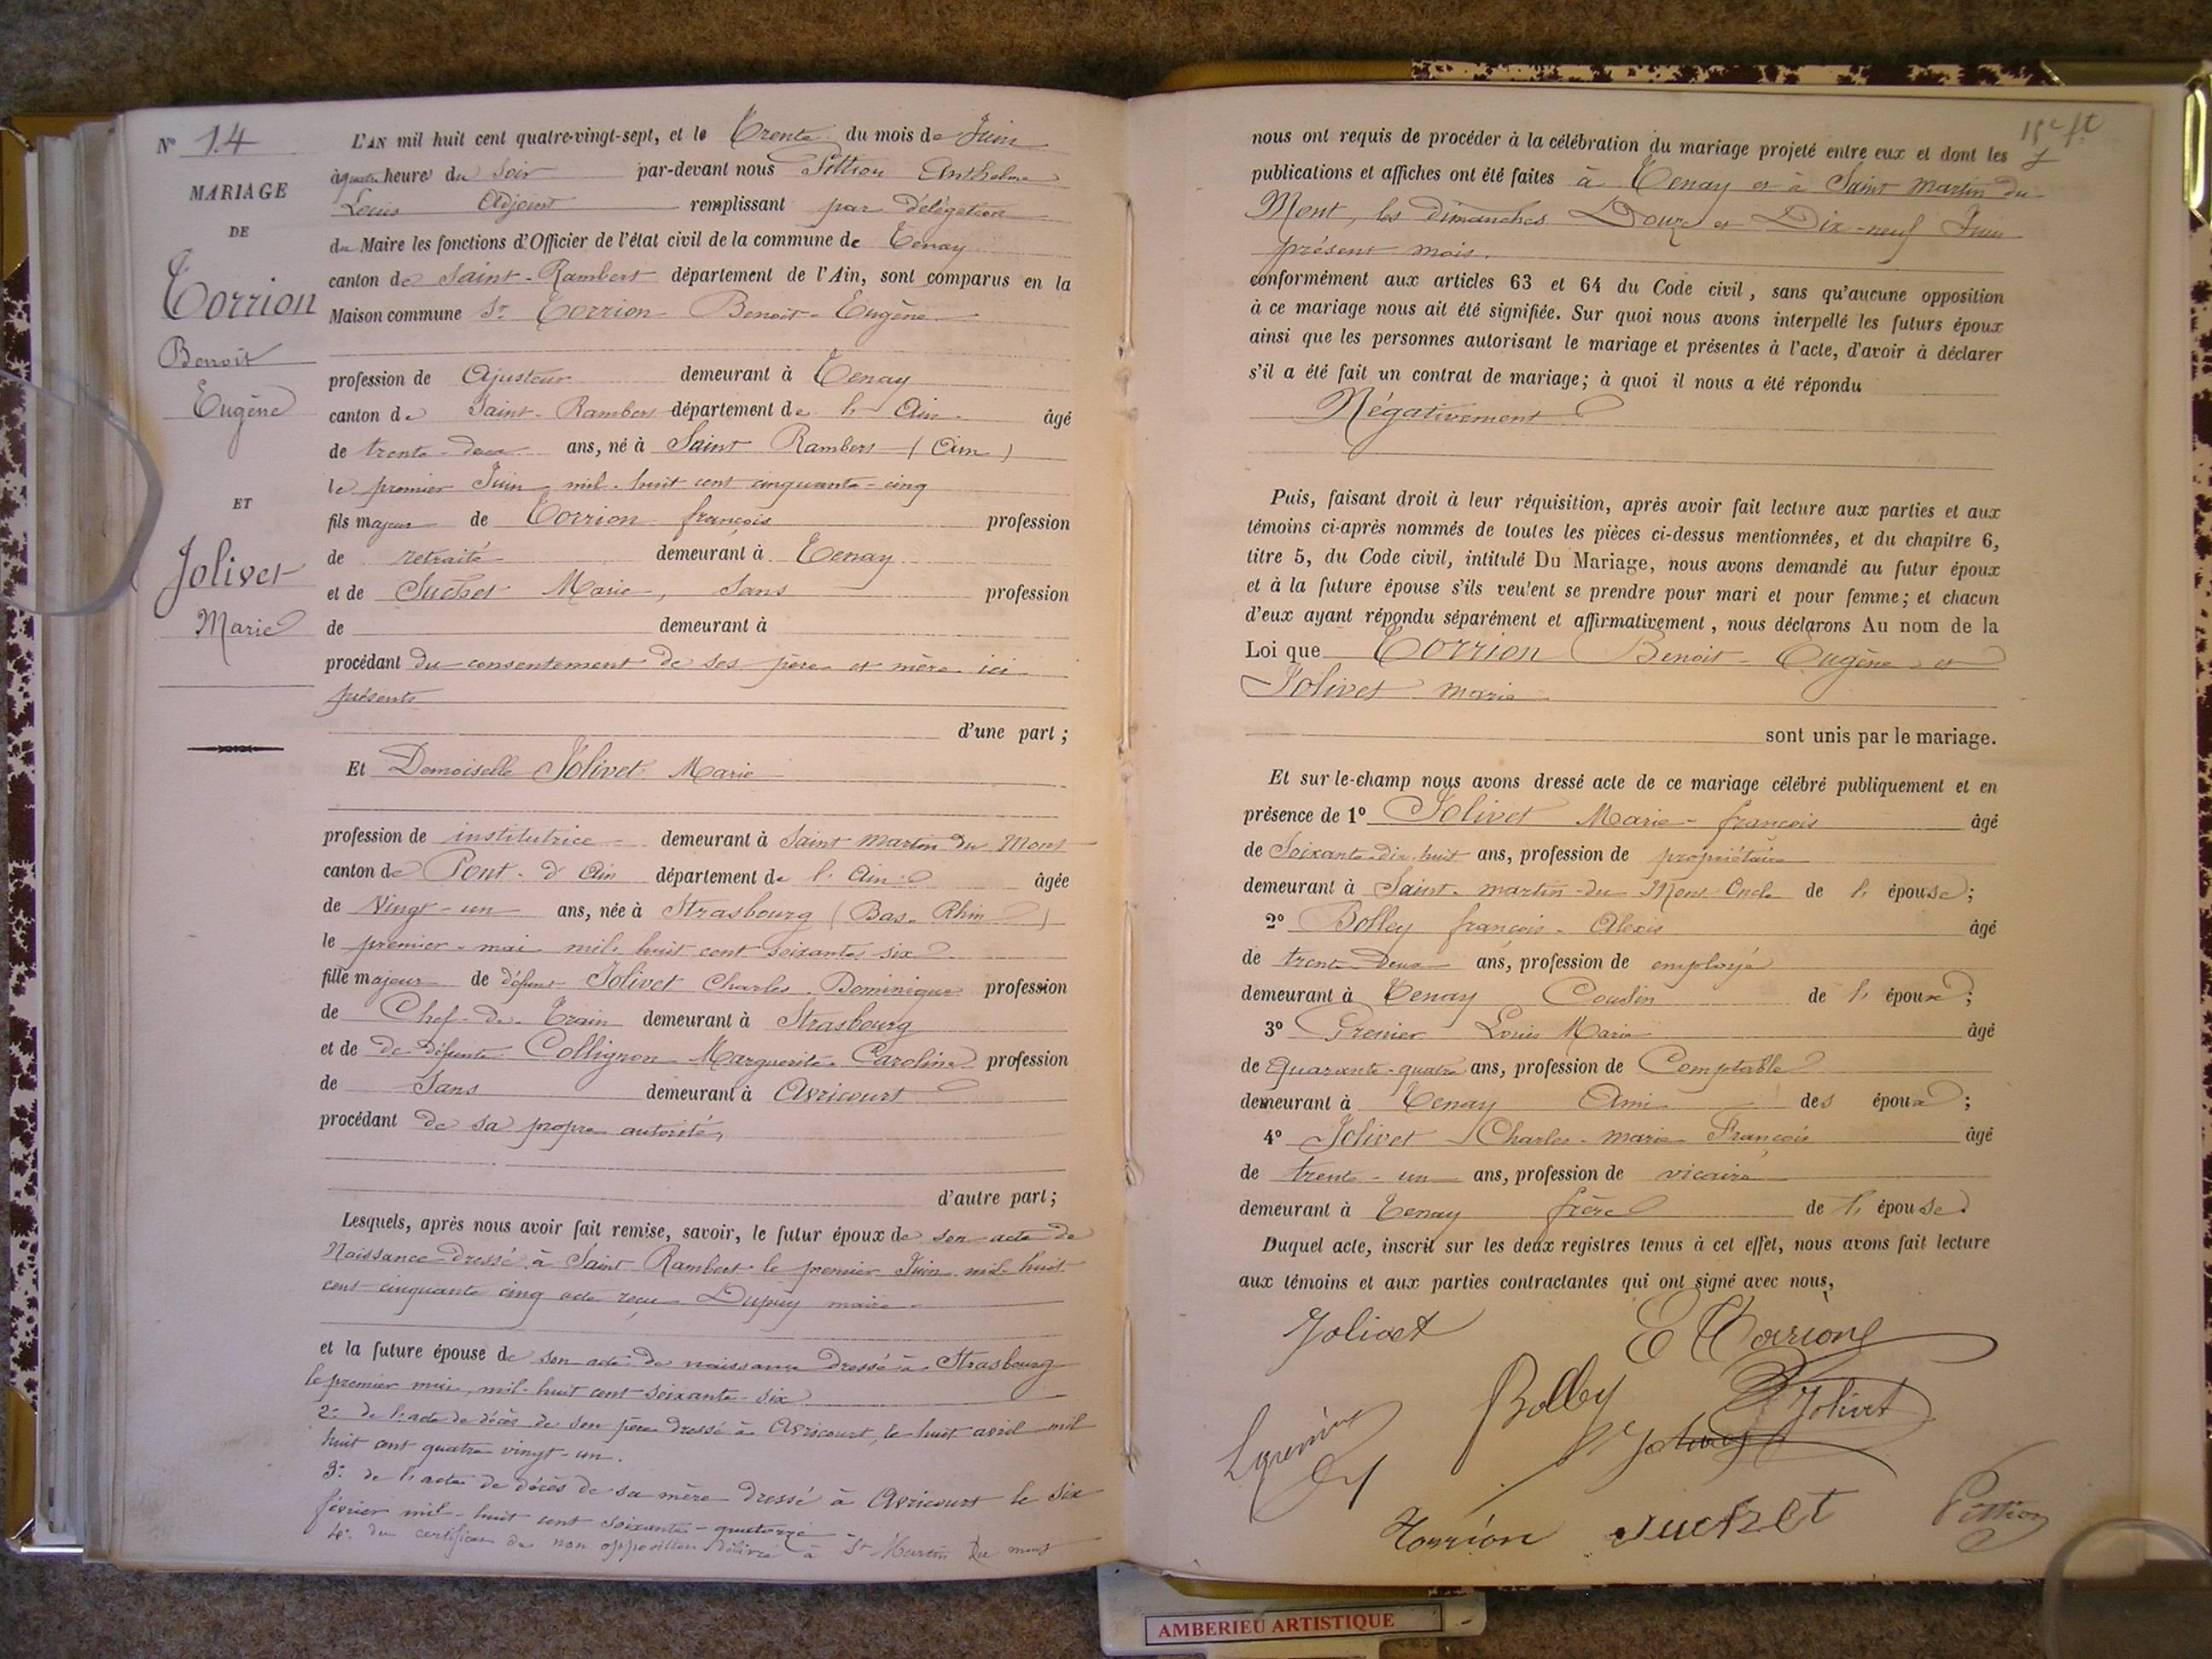 N° 14
MARIAGE
DE
Torrion
Benoit
Eugène
ET
Jolivet
Marie
L'AN mil huit cent quatre-vingt-sept, et le Trente du mois de Juin
à quatre heure du Soir par-devant nous Pittion Anthelme
Louis Adjoint remplissant par délégation
du Maire les fonctions d'Officier de l'état civil de la commune de Tenay
canton de Saint-Rambert département de l'Ain, sont comparus en la
Maison commune Sr Torrion Benoit-Eugène
profession de Ajusteur demeurant à Tenay
canton de Saint-Rambert département de l'Ain âgé
de trente-deux ans, né à Saint Rambert (Ain)
le premier Juin mil huit cent cinquante-cinq
fils majeur de Torrion françois profession
de retraité demeurant à Tenay
et de Suchet Marie, Sans profession
de demeurant à
procédant du consentement de ses père et mère ici
présents
d'une part ;
Et Demoiselle Jolivet Marie
profession de institutrice demeurant à Saint Martin du Mont
canton de Pont-d'Ain département de l'Ain âgée
de Vingt-un ans, née à Strasbourg (Bas-Rhin)
le premier mai mil huit cent soixante six
fille majeur de défunt Jolivet Charles Dominique profession
de Chef-de-Train demeurant à Strasbourg
et de de défunte Collignon Marguerite-Caroline profession
de Sans demeurant à Avricourt
procédant de sa propre autorité,
d'autre part ;
Lesquels, après nous avoir fait remise, savoir, le futur époux de son acte de
Naissance dressé à Saint Rambert le premier Juin mil huit
cent cinquante cinq acte reçu Dupuy maire
et la future épouse de son acte de naissance dressé à Strasbourg
le premier mai, mil-huit cent soixante-six
2° de l'acte de décès de son père dressé à Avricourt, le huit avril mil
huit cent quatre vingt-un.
3° de l'acte de décès de sa mère dressé à Avricourt le Six
février mil-huit cent soixante-quatorze
4° du certificat de non opposition délivré à St Martin du mont
15e ft
nous ont requis de procéder à la célébration du mariage projeté entre eux et dont les
publications et affiches ont été faites à Tenay et à Saint Martin du
Mont, les dimanches Douze et Dix-neuf Juin
présent mois.
conformément aux articles 63 et 64 du Code civil, sans qu'aucune opposition
à ce mariage nous ait été signifiée. Sur quoi nous avons interpellé les futurs époux
ainsi que les personnes autorisant le mariage et présentes à l'acte, d'avoir à déclarer
s'il a été fait un contrat de mariage ; à quoi il nous a été répondu
Négativement
Puis, faisant droit à leur réquisition, après avoir fait lecture aux parties et aux
témoins ci-après nommés de toutes les pièces ci-dessus mentionnées, et du chapitre 6,
titre 5, du Code civil, intitulé Du Mariage, nous avons demandé au futur époux
et à la future épouse s'ils veulent se prendre pour mari et pour femme ; et chacun
d'eux ayant répondu séparément et affirmativement, nous déclarons Au nom de la
Loi que Torrion Benoit-Eugène et
Jolivet marie
sont unis par le mariage.
Et sur-le-champ nous avons dressé acte de ce mariage célébré publiquement et en
présence de 1° Jolivet Marie-françois âgé
de Soixante-dix-huit ans, profession de propriétaire
demeurant à Saint-martin-du Mont Oncle de l'épouse ;
2° Bolley françois-Alexis âgé
de trente-deux ans, profession de employé
demeurant à Tenay Cousin de l'époux ;
3° Grenier Louis Marie âgé
de Quarante-quatre ans, profession de Comptable
demeurant à Tenay Ami des époux ;
4° Jolivet Charles-marie François âgé
de trente-un ans, profession de vicaire
demeurant à Tenay frère de l'épouse.
Duquel acte, inscrit sur les deux registres tenus à cet effet, nous avons fait lecture
aux témoins et aux parties contractantes qui ont signé avec nous,
Jolivet
E Torrion
Bolley
Jolivet
L Grenier
Jolivet
Torrion
Suchet
Pittion
AMBERIEU ARTISTIQUE